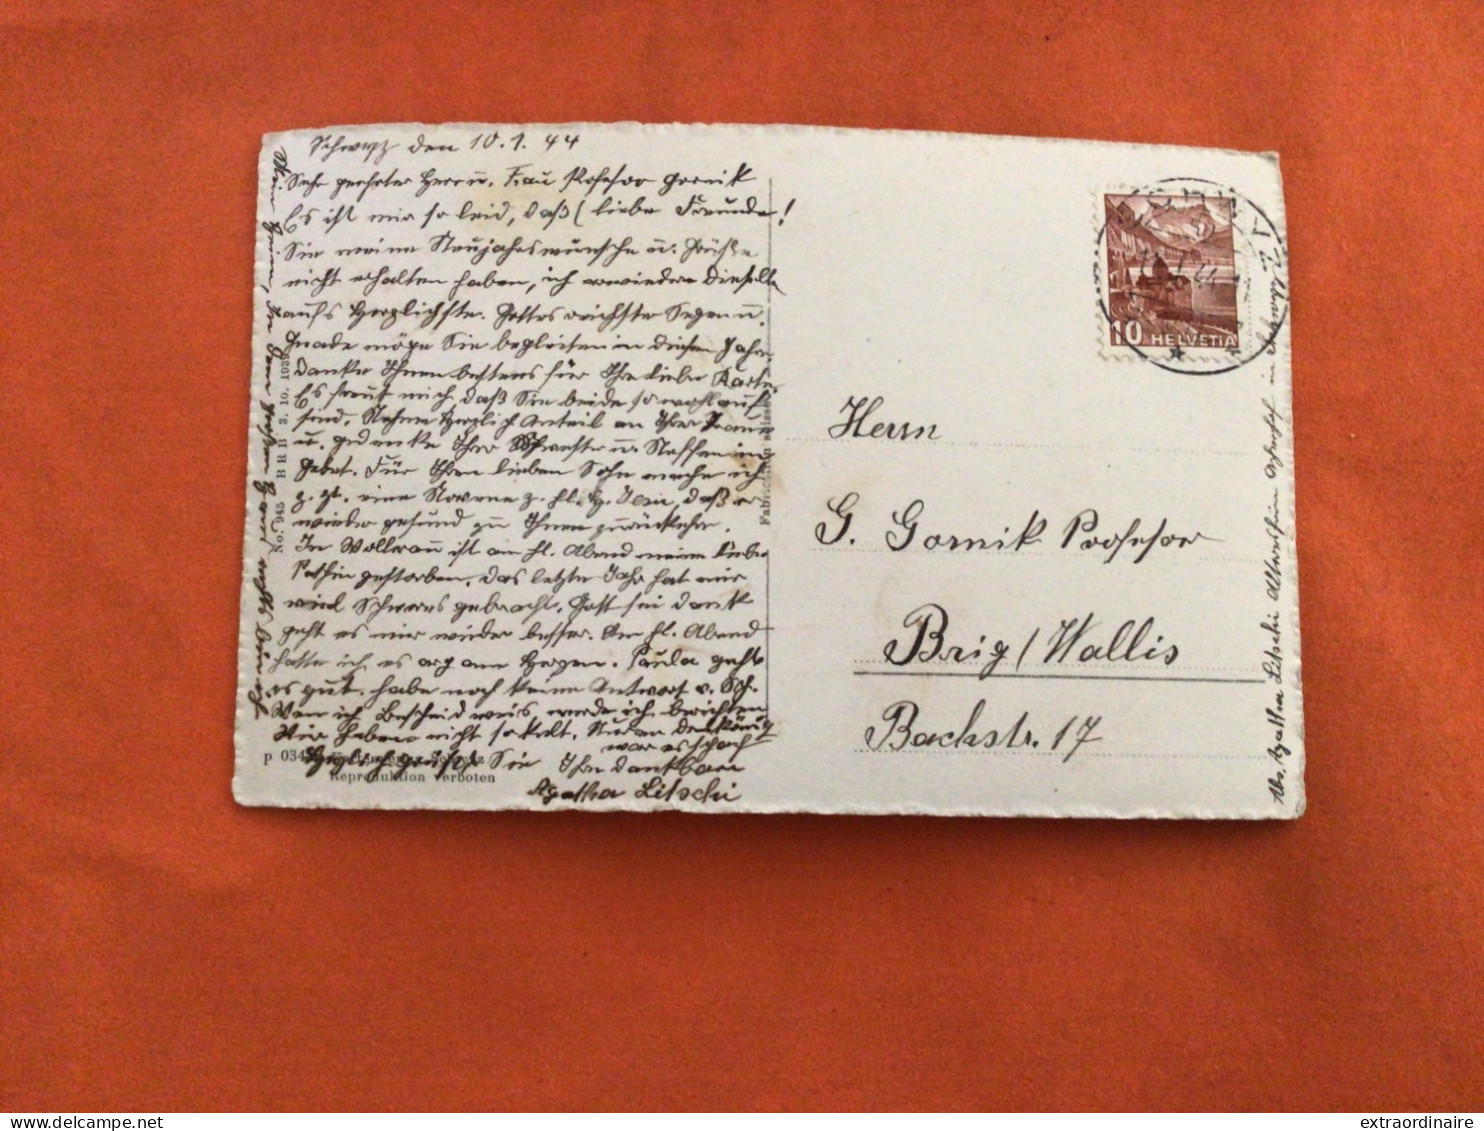 Schwyz den 10. 1. 44
Sehr geehrter Herr u. Frau Professor Gornik
Es ist mir so leid, daß (liebe Freunde!
Sie meine Neujahrswünsche u. Grüße
nicht erhalten haben, ich erwiedere dieselbe
aufs Herzlichste. Gottes reichster Segen u.
Gnade möge Sie begleiten in diesem Jahr.
danke Ihnen bestens für Ihre liebe Karte.
Es freut mich, daß Sie beide so wohlauf
sind. Nehme herzlich Anteil an Ihrer Trauer
u. gedenke Ihrer Schwester u. Neffen im
Gebet. Für Ihren lieben Sohn mache ich
z. Zt. eine Novene z. hl. daß er
wieder gesund zu Ihnen zurückkehre.
In Wollerau ist am hl. Abend meine liebe
Pathin gestorben, das letzte Jahr hat mir
viel Schweres gebracht. Gott sei dank
geht es mir wieder besser. Am hl. Abend
hatte ich es arg am Herzen. Paula geht
es gut. habe noch keine Antwort v.
Wen ich Bescheid weis, werde ich berichten
Wir haben nicht so kalt.
war es schon
Herzlich grüßt Sie Ihre dankbare
Agatha Litschi
No. 945 B R B 3. 10. 1939
p 034
Reproduktion verboten
HELVETIA
10
Herrn
G. Gornik Professor
Brig / Wallis
Bachstr. 17
Abs. Agatha Litschi Altersheim in Schwyz